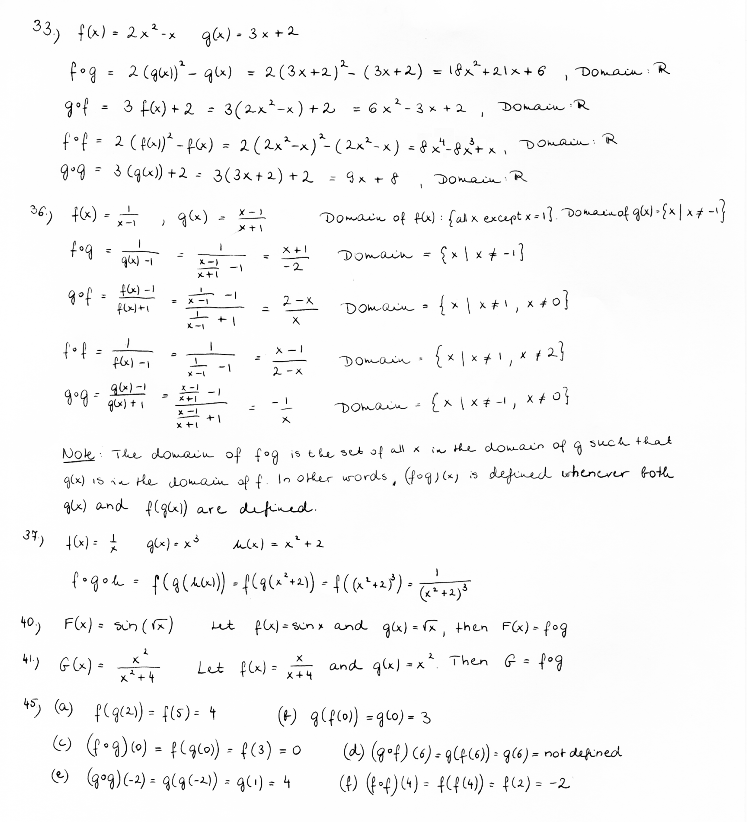 33.) f(x) = 2x² - x g(x) = 3x + 2
f∘g = 2(g(x))² - g(x) = 2(3x+2)² - (3x+2) = 18x² + 21x + 6 , Domain: R
g∘f = 3 f(x) + 2 = 3(2x² - x) + 2 = 6x² - 3x + 2 , Domain: R
f∘f = 2(f(x))² - f(x) = 2(2x² - x)² - (2x² - x) = 8x⁴ - 8x³ + x , Domain: R
g∘g = 3(g(x)) + 2 = 3(3x+2) + 2 = 9x + 8 , Domain: R
36.) f(x) = 1/(x-1) , g(x) = (x-1)/(x+1) Domain of f(x): {all x except x=1}. Domain of g(x) = {x | x ≠ -1}
f∘g = 1/(g(x)-1) = 1/((x-1)/(x+1) - 1) = (x+1)/(-2) Domain = {x | x ≠ -1}
g∘f = (f(x)-1)/(f(x)+1) = (1/(x-1) - 1)/(1/(x-1) + 1) = (2-x)/x Domain = {x | x ≠ 1, x ≠ 0}
f∘f = 1/(f(x)-1) = 1/(1/(x-1) - 1) = (x-1)/(2-x) Domain = {x | x ≠ 1, x ≠ 2}
g∘g = (g(x)-1)/(g(x)+1) = ((x-1)/(x+1) - 1)/((x-1)/(x+1) + 1) = -1/x Domain = {x | x ≠ -1, x ≠ 0}
Note: The domain of f∘g is the set of all x in the domain of g such that
g(x) is in the domain of f. In other words, (f∘g)(x) is defined whenever both
g(x) and f(g(x)) are defined.
37.) f(x) = 1/x g(x) = x³ h(x) = x² + 2
f∘g∘h = f(g(h(x))) = f(g(x²+2)) = f((x²+2)³) = 1/(x²+2)³
40.) F(x) = sin(√x) Let f(x) = sin x and g(x) = √x, then F(x) = f∘g
41.) G(x) = x²/(x²+4) Let f(x) = x/(x+4) and g(x) = x². Then G = f∘g
45.) (a) f(g(2)) = f(5) = 4 (b) g(f(0)) = g(0) = 3
(c) (f∘g)(0) = f(g(0)) = f(3) = 0 (d) (g∘f)(6) = g(f(6)) = g(6) = not defined
(e) (g∘g)(-2) = g(g(-2)) = g(1) = 4 (f) (f∘f)(4) = f(f(4)) = f(2) = -2